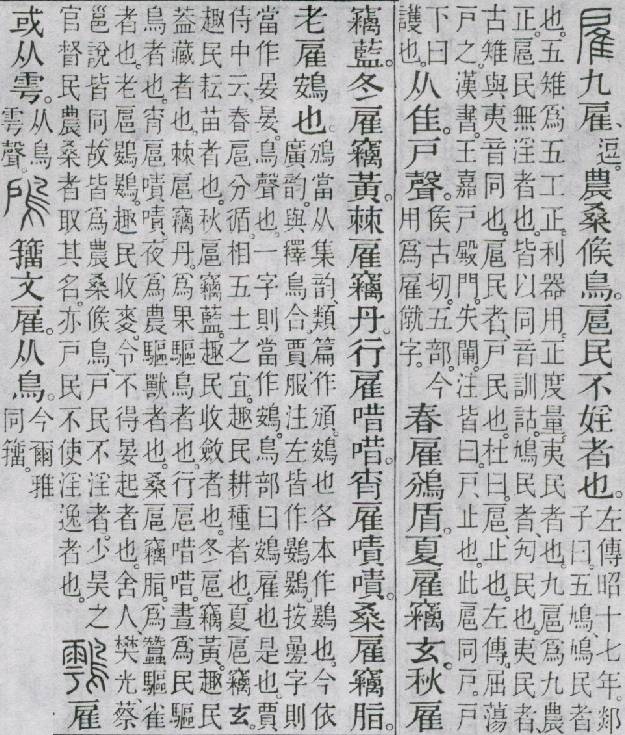 雇九雇、逗。農桑候鳥。扈民不婬者也。左傳昭十七年。郯
子曰。五鳩、鳩民者
也。五雉爲五工正。利器用。正度量。夷民者也。九扈爲九農
正。扈民無淫者也。皆以同音訓詁。鳩民者、勼民也。夷民者、
古雉與夷音同也。扈民者、戶民也。杜曰。扈、止也。左傳。屈蕩
戶之。漢書。王嘉戶殿門。失闌。注皆曰。戶、止也。此扈同戶。戶
下曰
護也。
从隹。戶聲。矦古切。五部。今
用爲雇僦字。
春雇鳻盾。夏雇竊玄。秋雇
竊藍。冬雇竊黃。棘雇竊丹。行雇唶唶。宵雇嘖嘖。桑雇竊脂。
老雇鴳也。鳻當从集韵、類篇作頒。鴳也各本作鷃也。今依
廣韵。與釋鳥合。賈服注左皆作鷃鷃。按疊字則
當作晏晏。鳥聲也。一字則當作鴳。鳥部曰鴳雇也是也。賈
侍中云。春扈分循。相五土之宜。趣民耕種者也。夏扈竊玄。
趣民耘苗者也。秋扈竊藍。趣民收斂者也。冬扈竊黃。趣民
葢藏者也。棘扈竊丹。爲果驅鳥者也。行扈唶唶。晝爲民驅
鳥者也。宵扈嘖嘖。夜爲農驅獸者也。桑扈竊脂。爲蠶驅雀
者也。老扈鷃鷃。趣民收麥。令不得晏起者也。舍人樊光蔡
邕說皆同。故皆爲農桑候鳥。戶民不淫者。少昊之
官督民農桑者取其名。亦戶民不使淫逸者也。
雇
或从雩。从鳥。
雩聲。
鳸籒文雇。从鳥。今爾雅
同籒。